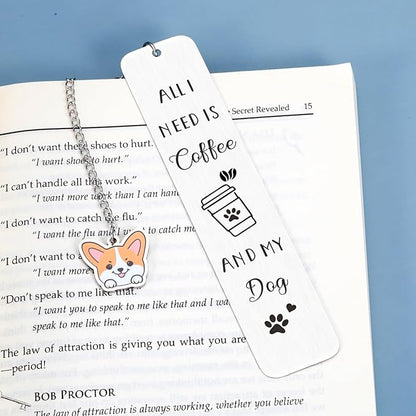 Secret Revealed 15
"I don't want the shoes to hurt."
"I want shoes to hurt."
"I can't handle all this work."
"I want more work than I can
"I don't want to catch the flu."
"I want the flu and I want to catch
"I don't want to
"I want more
"Don't speak to me like that."
"I want you to speak to me like that and I
speak to me like that."
The law of attraction is giving you what you
—period!
BOB PROCTOR
The law of attraction is always working, whether you believe
ALL I
NEED IS
Coffee
AND MY
Dog